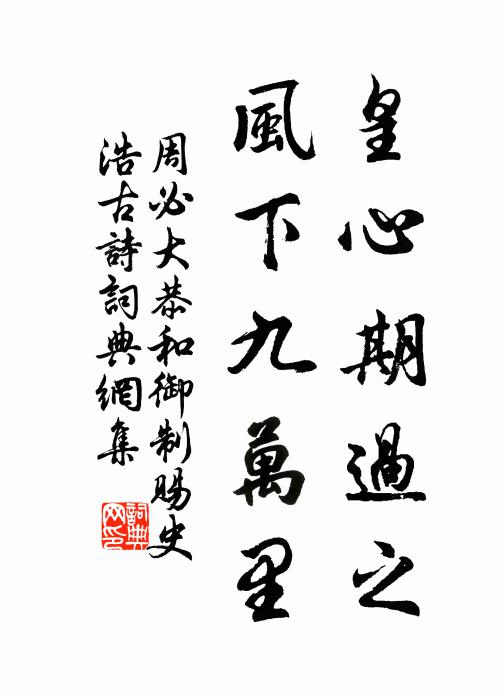 皇心期過之
風下九萬里
周必大恭和御制賜史
浩古詩詞典網集
詞典
网印